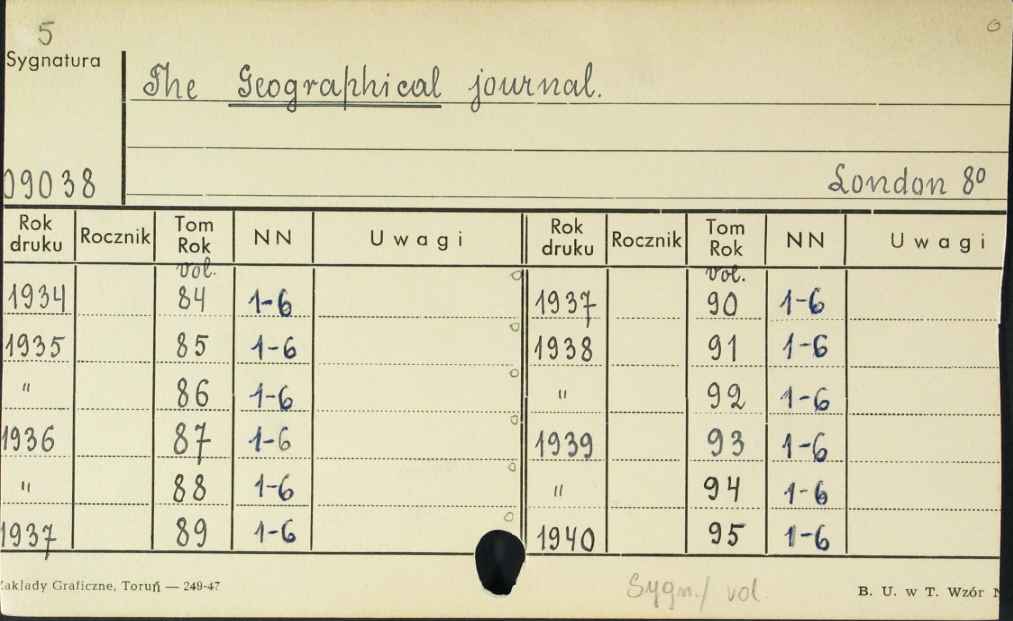 5
Sygnatura
The Geographical journal.
09038
London 8º
Rok druku Rocznik Tom Rok NN Uwagi Rok druku Rocznik Tom Rok NN Uwagi
vol. vol.
1934 84 1-6 1937 90 1-6
1935 85 1-6 1938 91 1-6
" 86 1-6 " 92 1-6
1936 87 1-6 1939 93 1-6
" 88 1-6 " 94 1-6
1937 89 1-6 1940 95 1-6
Zakłady Graficzne, Toruń — 249-47 Sygn./ vol. B. U. w T. Wzór N